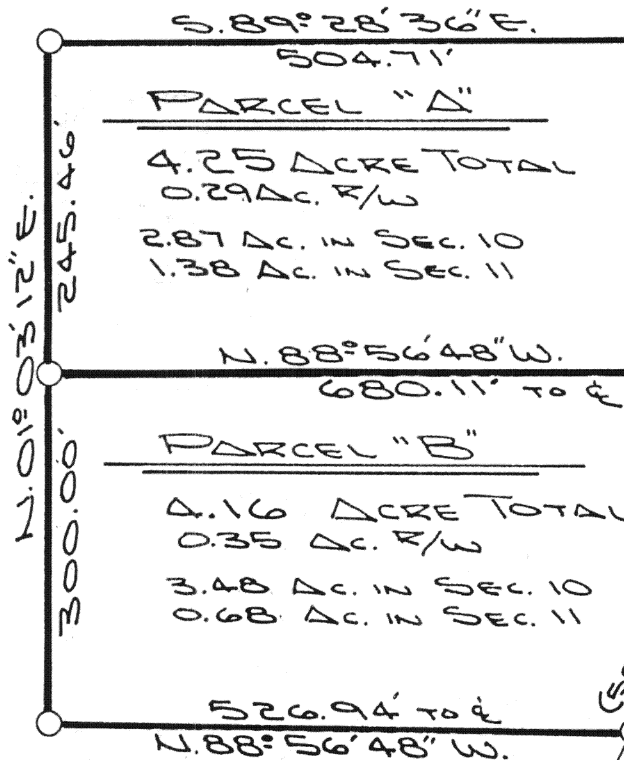 S. 89° 28' 36" E.
504.71'
PARCEL "A"
4.25 ACRE TOTAL
0.29 AC. R/W
2.87 AC. IN SEC. 10
1.38 AC. IN SEC. 11
245.46'
N. 01° 03' 12" E.
N. 88° 56' 48" W.
680.11' TO ℄
PARCEL "B"
4.16 ACRE TOTAL
0.35 AC. R/W
3.48 AC. IN SEC. 10
0.68 AC. IN SEC. 11
300.00'
526.94' TO ℄
N. 88° 56' 48" W.